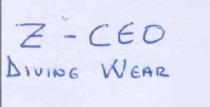 Z - CEO
DIVING WEAR